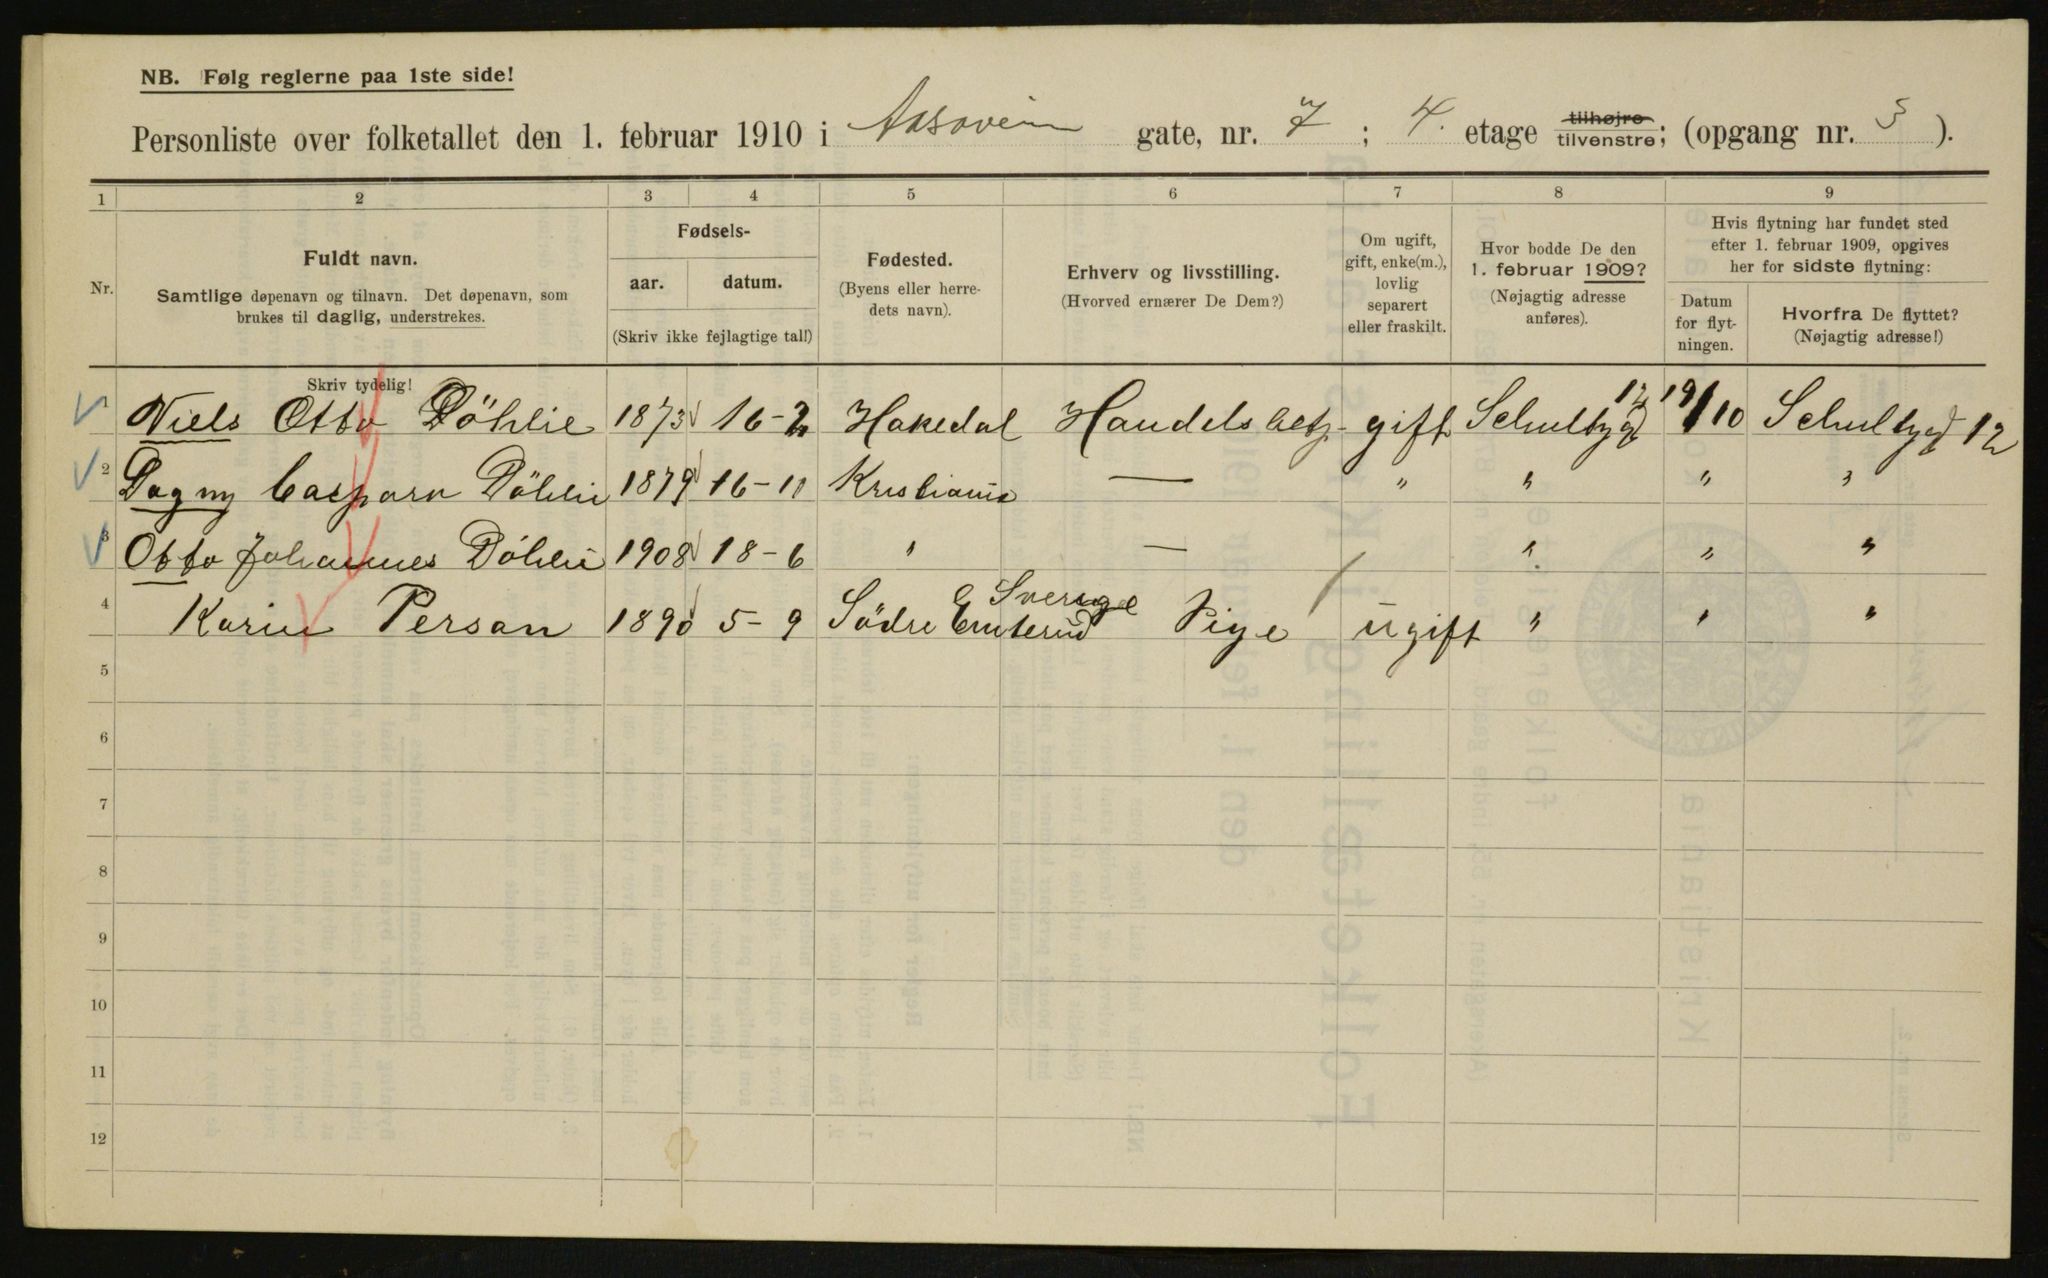 NB. Følg reglerne paa 1ste side!
Personliste over folketallet den 1. februar 1910 i Aasaveien gate, nr. 7; 4. etage tilhøjre tilvenstre; (opgang nr. 3).
1 2 3 4 5 6 7 8 9
Nr.
Fuldt navn.
Samtlige døpenavn og tilnavn. Det døpenavn, som
brukes til daglig, understrekes.
Skriv tydelig!
Fødsels-
aar. datum.
(Skriv ikke fejlagtige tal!)
Fødested.
(Byens eller herre-
dets navn).
Erhverv og livsstilling.
(Hvorved ernærer De Dem?)
Om ugift,
gift, enke(m.),
lovlig
separert
eller fraskilt.
Hvor bodde De den
1. februar 1909?
(Nøjagtig adresse
anføres).
Hvis flytning har fundet sted
efter 1. februar 1909, opgives
her for sidste flytning:
Datum
for flyt-
ningen.
Hvorfra De flyttet?
(Nøjagtig adresse!)
1 Niels Otto Döhlie 1873 16-2 Hakedal Handelsbetj. gift Schultzgd 12 19/1 10 Schultzgd 12
2 Dagny Casparn Döhlie 1879 16-11 Kristiania — " " " "
3 Otto Johannes Döhlie 1908 18-6 " — " " "
4 Karin Person 1890 5-9 Södre Sverige Pige ugift " " "
5
6
7
8
9
10
11
12